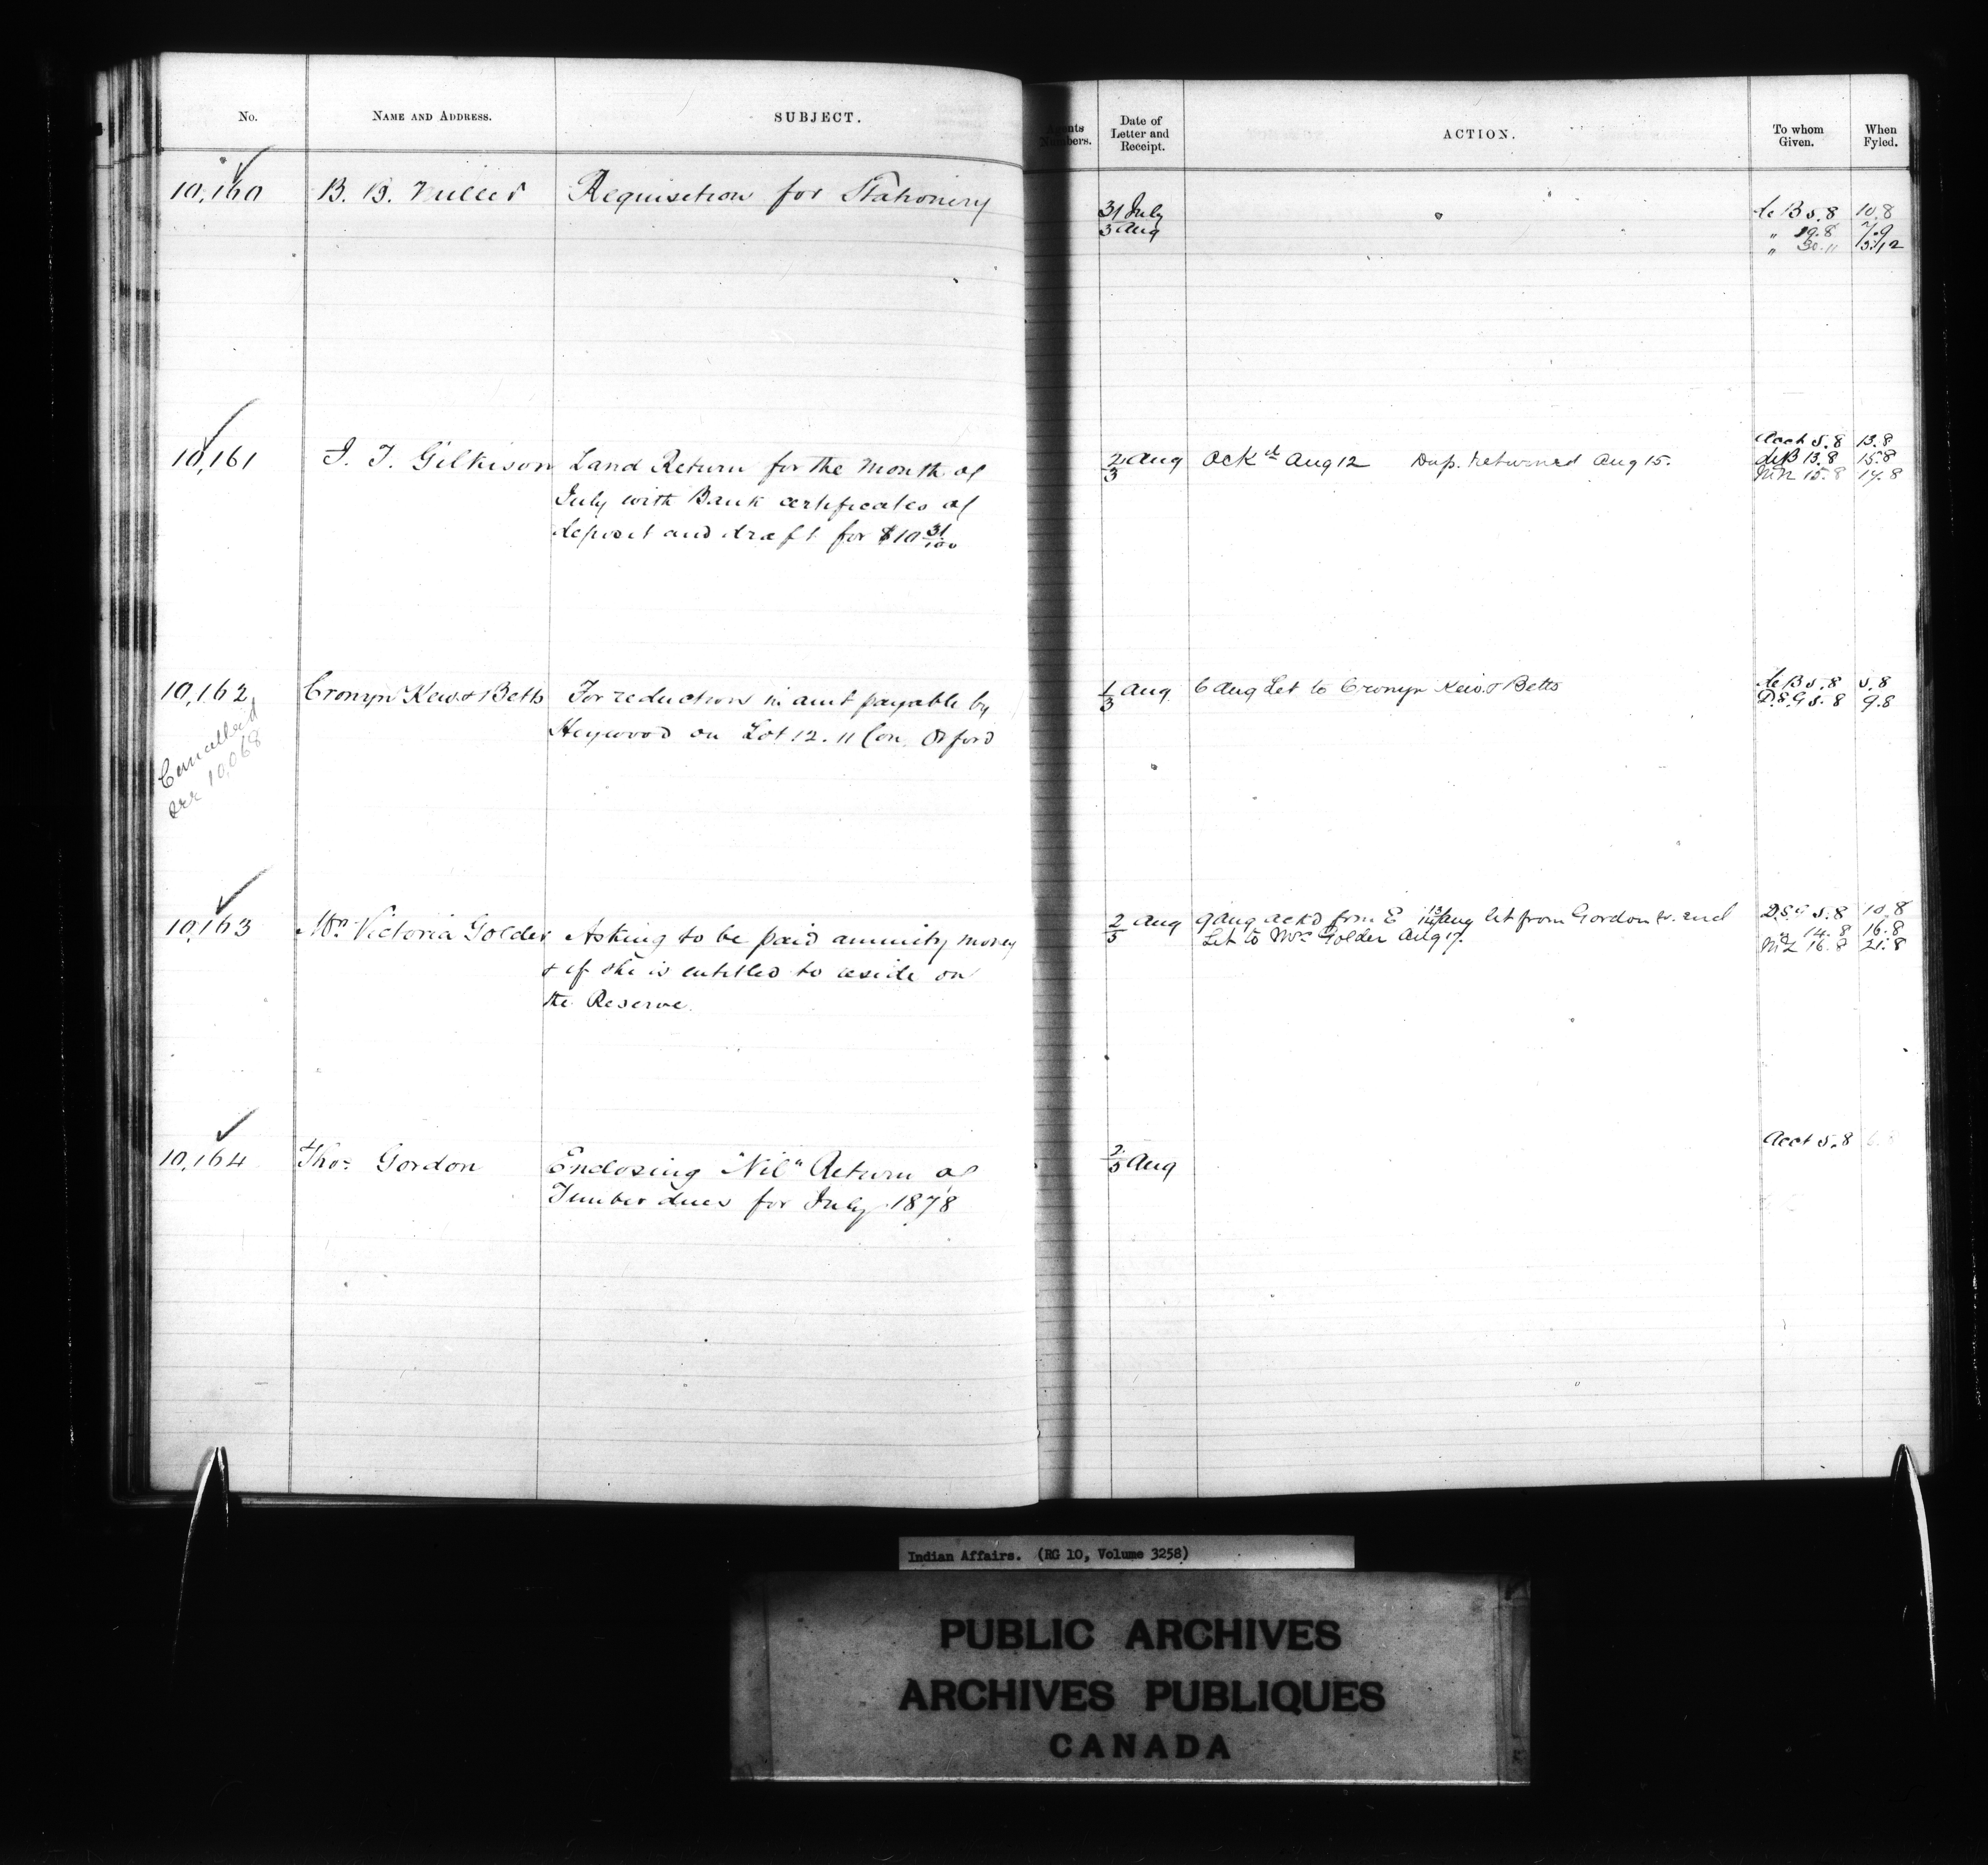 No.
NAME AND ADDRESS.
SUBJECT.
Agents Numbers.
Date of Letter and Receipt.
ACTION.
To whom Given.
When Fyled.
10,160
B. B.
Requisition for Stationery
31 July
3 Aug
de B 5.8 10.8
" 19.8 7.9
" 30.11
10,161
J. T. Gilkison
Land Return for the Month of
July with Bank certificates of
deposit and draft for $10 31/100
2/3 Aug
Ackd Aug 12 Dup. returned Aug 15.
Acct 5.8 13.8
de B 13.8 15.8
15.8 17.8
10,162
Cancelled
see 10,068
Cronyn Kew & Betts
For reduction in amt payable by
Heywood on Lot 12. 11 Con. Orford
1/3 Aug
6 Aug Let to Cronyn Kew & Betts
de B 5.8 5.8
D.S.G 5.8 9.8
10,163
Mrs Victoria Golder
Asking to be paid annuity money
& if she is entitled to reside on
the Reserve.
2/5 Aug
9 Aug ackd form E Aug let from Gordon and
Let to Mrs Golder Aug 17.
D.S.G 5.8 10.8
" 14.8 16.8
16.8 21.8
10,164
Thos Gordon
Enclosing "Nil" Return of
Timber dues for July 1878
2/5 Aug
Acct 5.8 6.8
Indian Affairs. (RG 10, Volume 3258)
PUBLIC ARCHIVES
ARCHIVES PUBLIQUES
CANADA